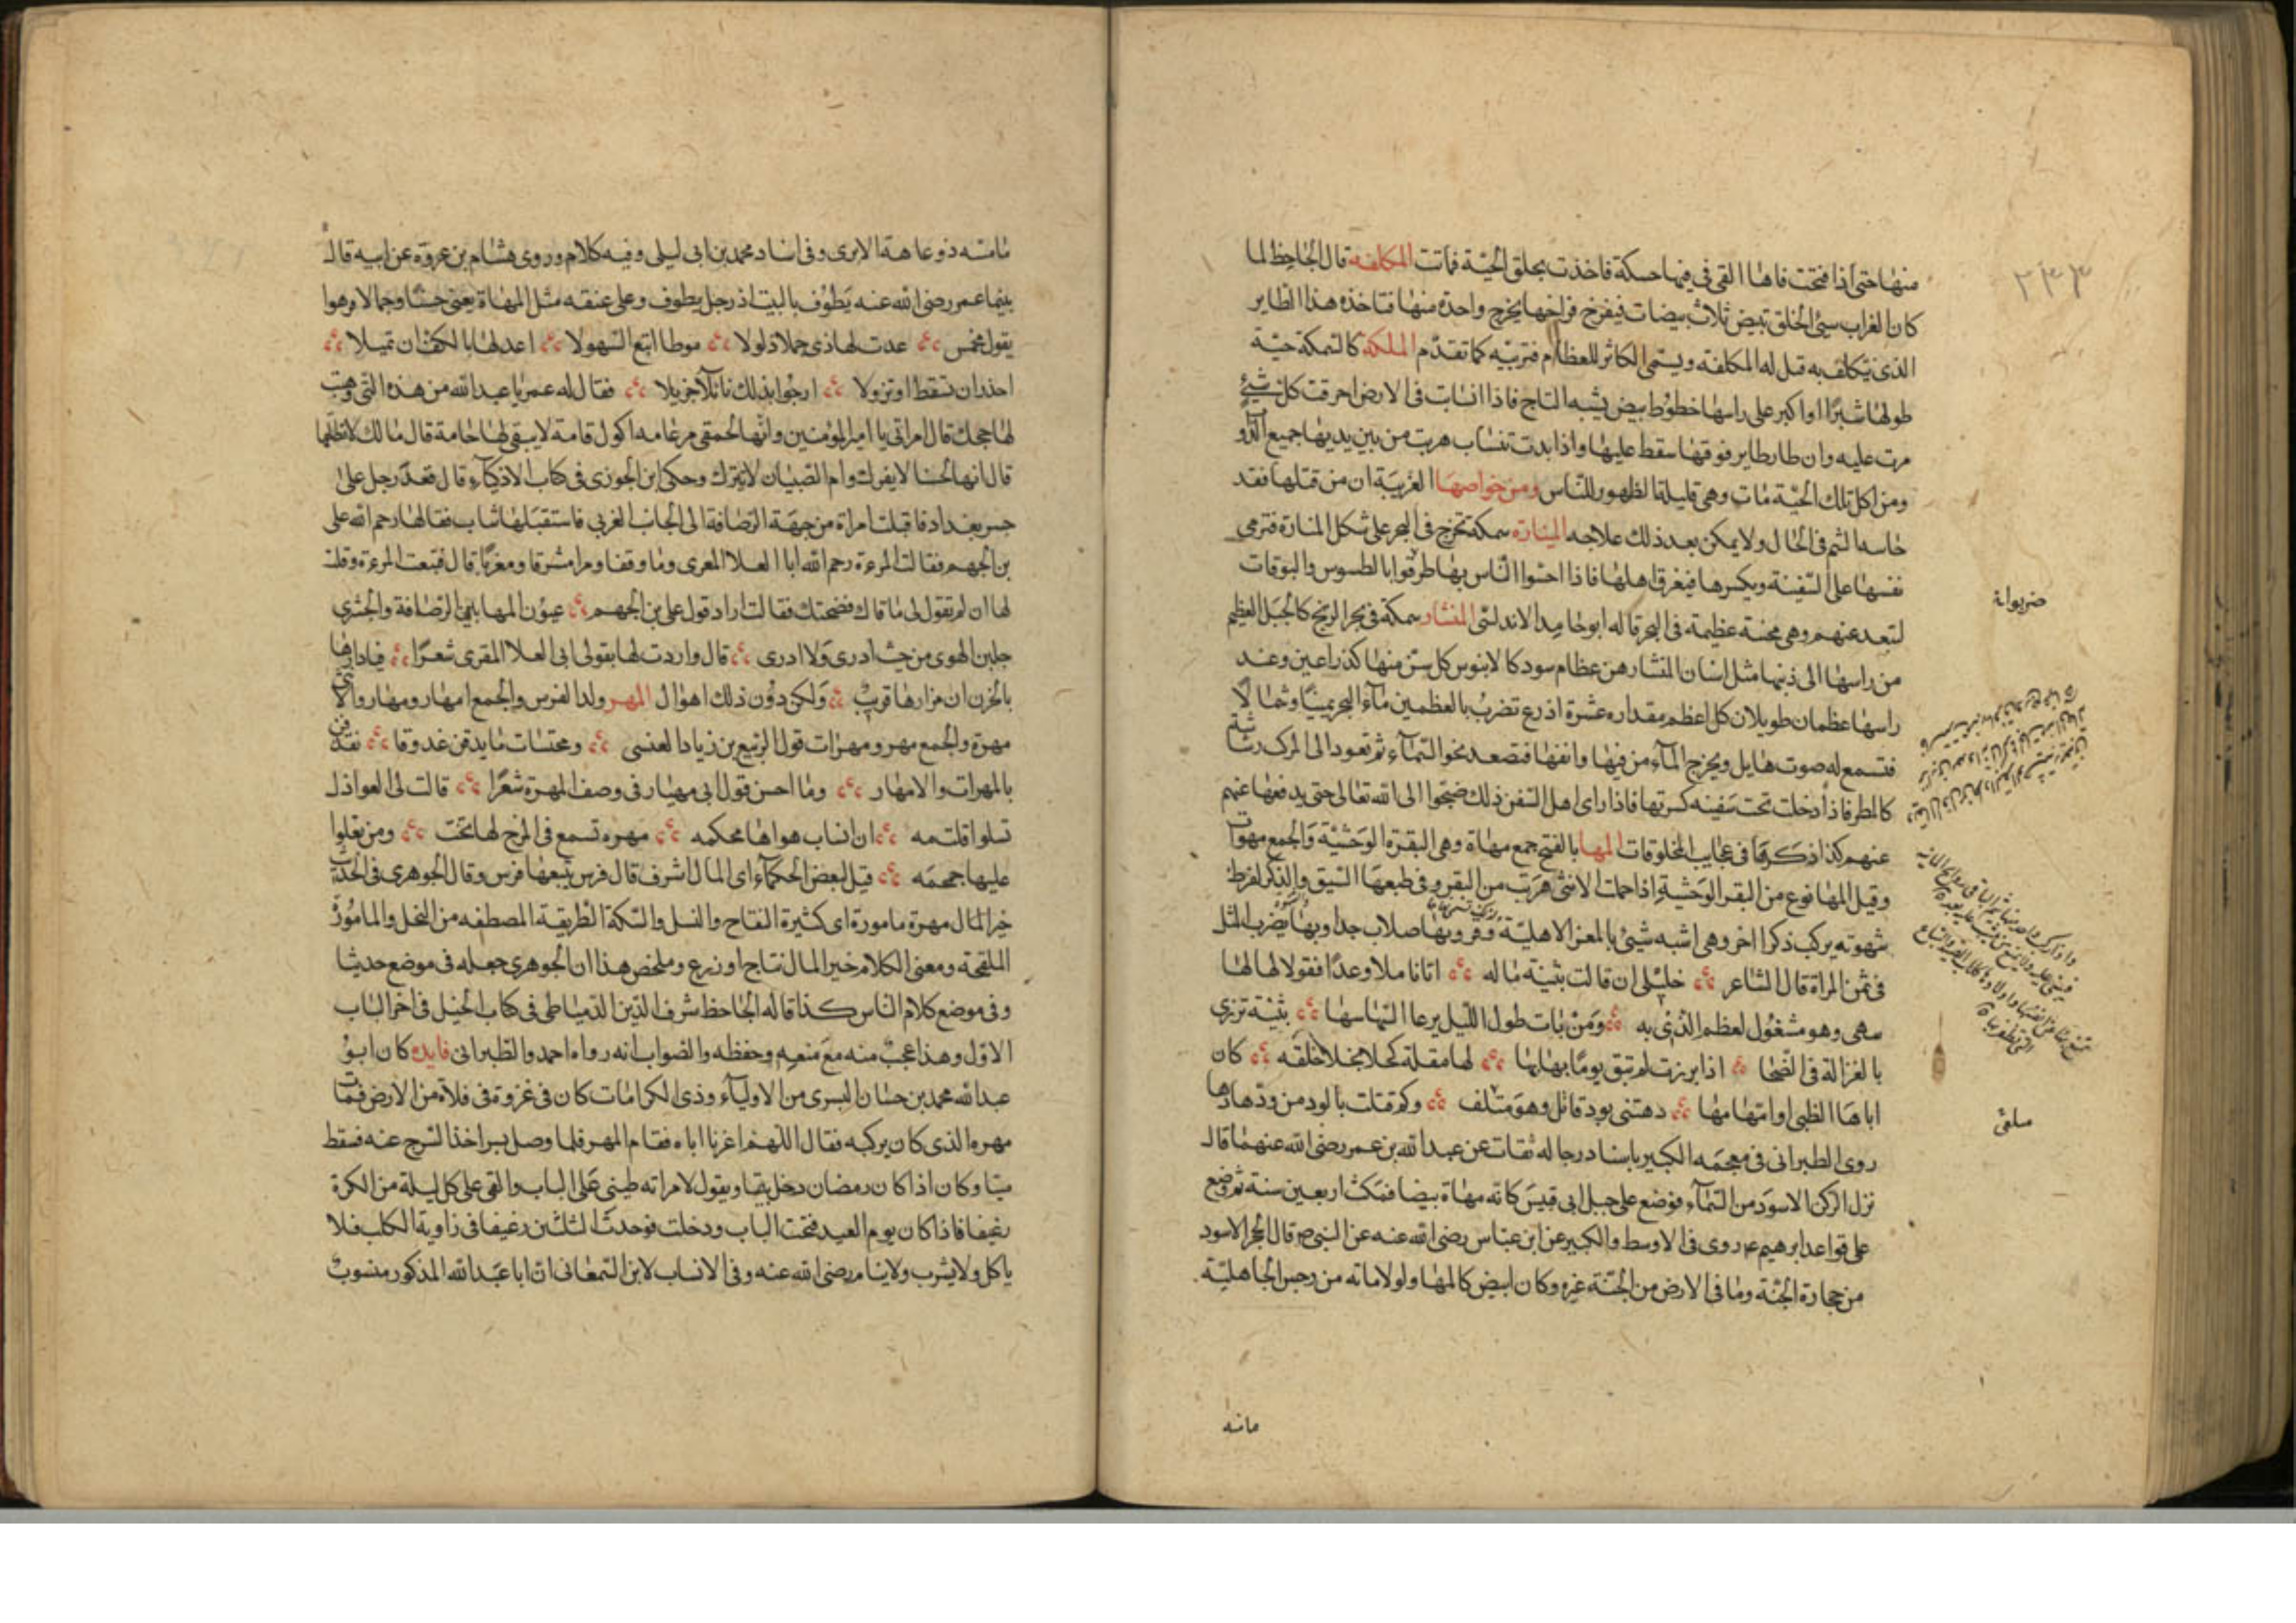 ٢٣٣
منها حتى اذا فتحت فاها القى في فيها حسكة فاخذت بحلق الحية فماتت المكلفة قال الجاحظ لما
كان الغراب سيئ الخلق تبيض ثلاث بيضات فيفرخ فراخها يخرج واحدة منها فتاخذه هذا الطاير
الذى يتكلف به قيل له المكلفة ويسمى الكاثر للعظام فتربيه كما تقدم الملكة كالسمكة حية
طولها شبرا او اكبر على راسها خطوط بيض يشبه التاج فاذا انسابت فى الارض احرقت كل شيئ
مرت عليه وان طار طاير فوقها سقط عليها واذا بدت تنساب هربت من بين يديها جميع الدو
ومن اكل تلك الحية مات وهى قليلة الظهور للناس ومن خواصها الغريبة ان من قتلها فقد
حاسة الشم فى الحال ولا يمكن بعد ذلك علاجه المنارة سمكة تخرج فى البحر على شكل المنارة فترمى
نفسها على السفينة ويكسرها فيغرق اهلها فاذا احسوا الناس بها طرقوا بالطسوس والبوقات
لتبعد عنهم وهى محنة عظيمة فى البحر قاله ابو حامد الاندلسى المنشار سمكة فى بحر الزنج كالجبل العظيم
من راسها الى ذنبها مثل اسنان المنشار من عظام سود كالابنوس كل سن منها كذراعين وعند
راسها عظمان طويلان كل اعظم مقداره عشرة اذرع تضرب بالعظمين ماء البحر يمينا وشمالا
فتسمع له صوت هايل ويخرج الماء من فيها وانفها فتصعد نحو السماء ثم تعود الى المركب رشاشه
كالمطر فاذا دخلت تحت سفينه كسرتها فاذا راى اهل السفن ذلك ضجوا الى الله تعالى حتى يدفعها عنهم
عنهم كذا ذكره فى عجايب المخلوقات المها بالفتح جمع مهاة وهى البقرة الوحشية والجمع مهوات
وقيل المها نوع من البقر الوحشية اذا حملت الانثى هربت من البقر وفى طبعها الشبق والذكر لفرط
شهوته يركب ذكرا اخر وهى اشبه شيئ بالمعز الاهلية وقرونها صلاب جدا وبها يضرب المثل
فى سمن المراة قال الشاعر خليلى ان قالت بثينة ماله اتانا ملا وعدا فقولا لها لها
سهى وهو مشغول لعظم الذى به ومن بات طول الليل يرعا السها سها بثينة تزرى
بالغزالة فى الضحا اذا برزت لم تبق يوما بها بها لها مقلة كحلا نجلا خلقه كان
اباها الظبى او امها مها دهتنى بود قاتل وهو متلف وكم قتلت بالود من ودها دها
روى الطبرانى فى معجمه الكبير باسناد رجاله ثقات عن عبد الله بن عمر رضى الله عنهما قال
نزل الركن الاسود من السماء فوضع على جبل ابى قبيس كانه مهاة بيضا فمكث اربعين سنة ثم وضع
على قواعد ابرهيم عم روى فى الاوسط والكبير عن ابن عباس رضى الله عنه عن النبى ص قال الحجر الاسود
من حجارة الجنة وما فى الارض من الجنة غيره وكان ابيض كالمها ولولا ماته من رجس الجاهلية
مامسه
مامسه ذو عاهة الا برى وفى اسناد محمد بن ابى ليلى وفيه كلام وروى هشام بن عروة عن ابيه قال
بينما عمر رضى الله عنه يطوف بالبيت اذ رجل يطوف وعلى عنقه مثل المهاة يعنى حسنا وجمالا وهوا
يقول عدت لهاذى جملا ذلولا موطا اتبع السهولا اعدلها بالكف ان تميلا
احذر ان تسقط او تزولا ارجوا بذلك نائلا جزيلا فقال له عمر يا عبد الله من هذه التى وهبت
لها حجك قال امراتى يا امير المؤمنين وانها لحمقى مرغامه اكول قامة لا يبقى لها خامة قال مالك لا تطلقها
قال انها لحسنا لا يفرك وام الصبيان لا تترك وحكى ابن الجوزى فى كتاب الاذكياء قال قعد رجل على
جسر بغداد فاقبلت امراة من جهة الرصافة الى الجانب الغربى فاستقبلها شاب فقال لها رحم الله على
بن الجهم فقالت المرءة رحم الله ابا العلا المعرى وما وقفا ومرا مشرقا ومغربا قال فتبعت المرءة وقلت
لها ان لم تقول لى ما قاك فضحتك فقالت اراد قول على بن الجهم عيون المها بين الرصافة والجسرى
جلبن الهوى من حيث ادرى ولا ادرى قال واردت لها بقولى ابى العلا المقرى شعرا فيا دارها
بالحزن ان مزارها قريب ولكن دون ذلك اهوال المهر ولد الفرس والجمع امهار ومهار والانثى
مهرة والجمع مهر ومهرات قول الربيع بن زياد العنسى ومجنبات ما يذقن عدوقا يقذفن
بالمهرات والامهار وما احسن قول ابى مهيار فى وصف المهرة شعرا قالت لى العواذل
تسلوا قلت مه ان انساب هواها محكمه مهره تسمع فى المرج لها تحت ومن يعلوا
عليها حمحمه قيل لبعض الحكماء اى المال اشرف قال فرس يتبعها فرس وقال الجوهرى فى الحديث
خير المال مهرة مامورة اى كثيرة النتاج والنسل والسكة الطريقة المصطفه من النخل والمامورة
الملقحة ومعنى الكلام خير المال نتاج او زرع وملخص هذا ان الجوهرى جعله فى موضع حديثا
وفى موضع كلام الناس كذا قاله الحافظ شرف الدين الدمياطى فى كتاب الخيل فى اخر الباب
الاول وهذا عجب منه مع منعه وحفظه والصواب انه رواه احمد والطبرانى فايده كان ابو
عبد الله محمد بن حسان البسرى من الاولياء وذى الكرامات كان فى غزوة فى فلاة من الارض فمات
مهره الذى كان يركبه فقال اللهم اغرنا اياه فقام المهر فلما وصل بسر اخذ السرج عنه فسقط
ميتا وكان اذا كان رمضان دخل بيتا ويقول لامراته طينى على الباب والقى على كل ليلة من الكوة
رغيفا فاذا كان يوم العيد فتحت الباب ودخلت فوجدت الثلثين رغيفا فى زاوية الكلب فلا
ياكل ولا يشرب ولا ينام رضى الله عنه وفى الانساب لابن السمعانى ان ابا عبد الله المذكور منسوب